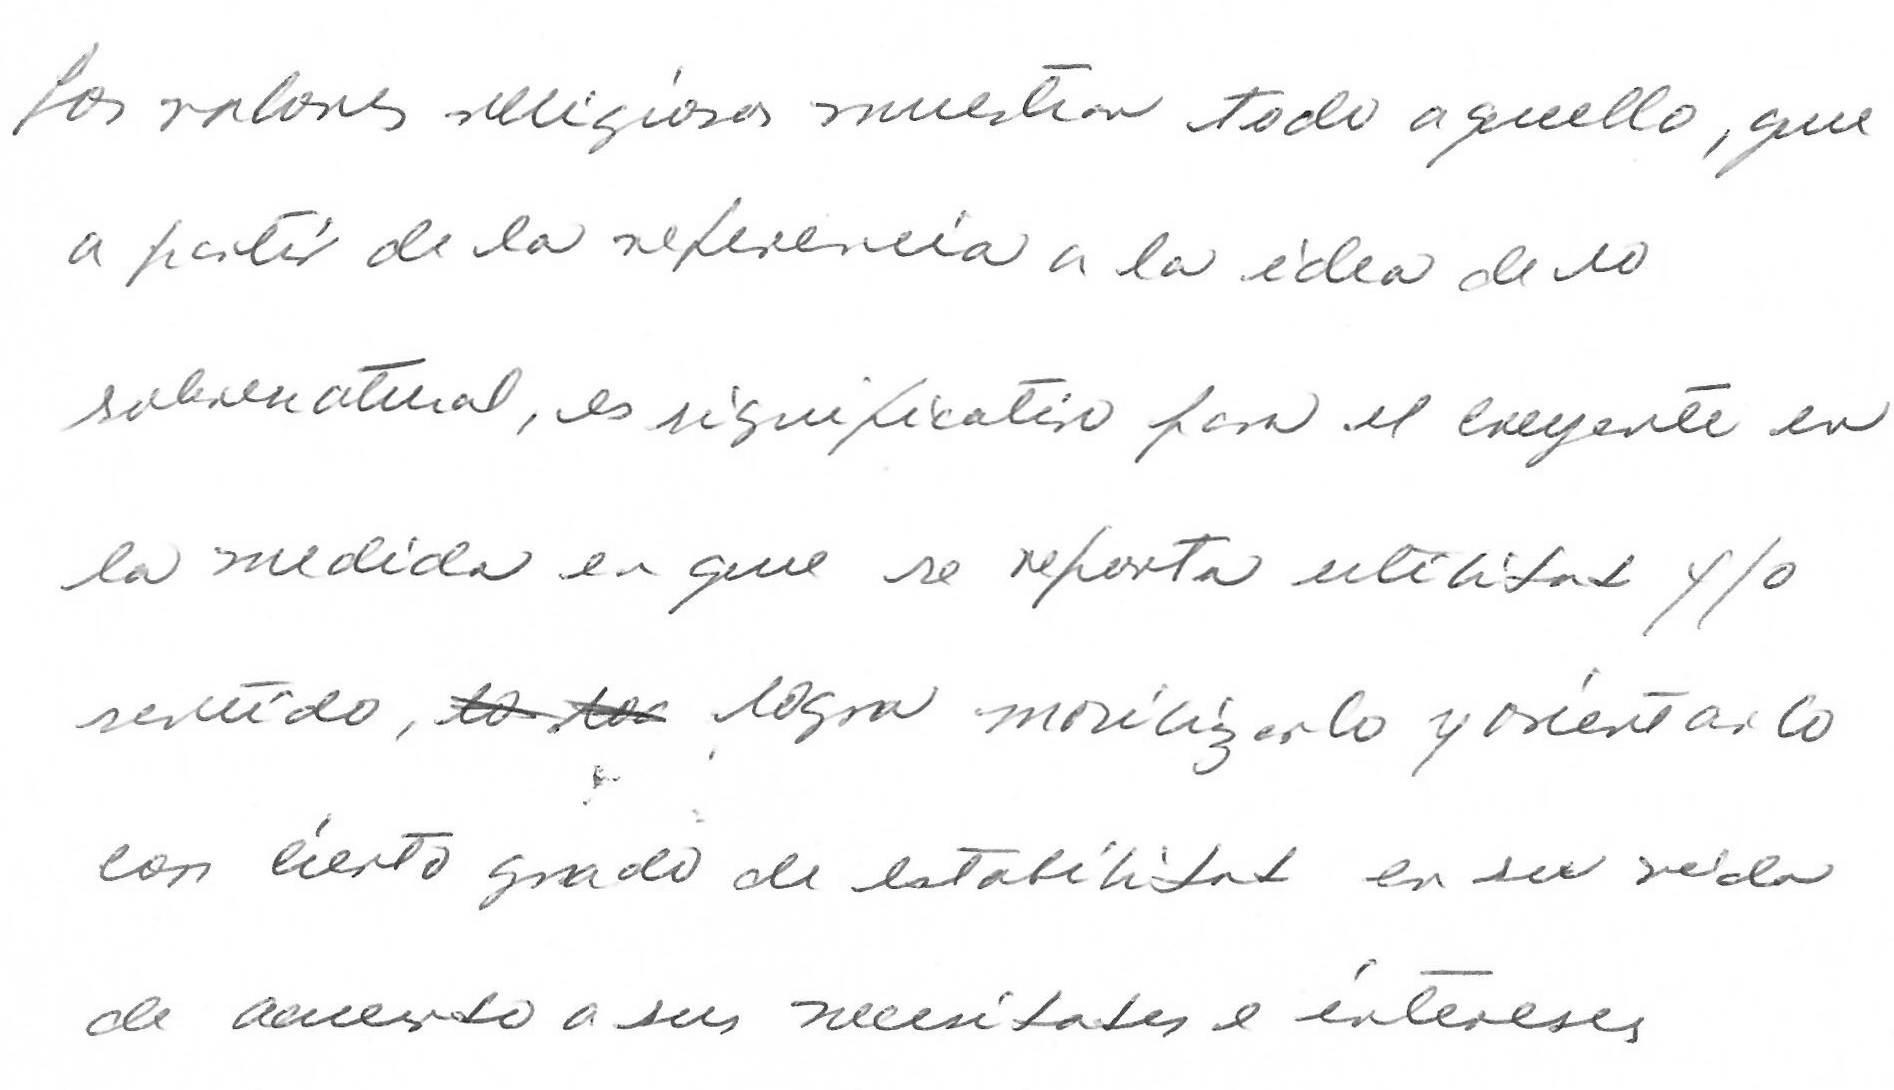 Los valores religiosos muestran todo aquello, que
a partir de la referencia a la idea de lo
sobrenatural, es significativo para el creyente en
la medida en que se reporta utilidad y/o
sentido, logra movilizarlo y orientarlo
con cierto grado de estabilidad en su vida
de acuerdo a sus necesidades e intereses